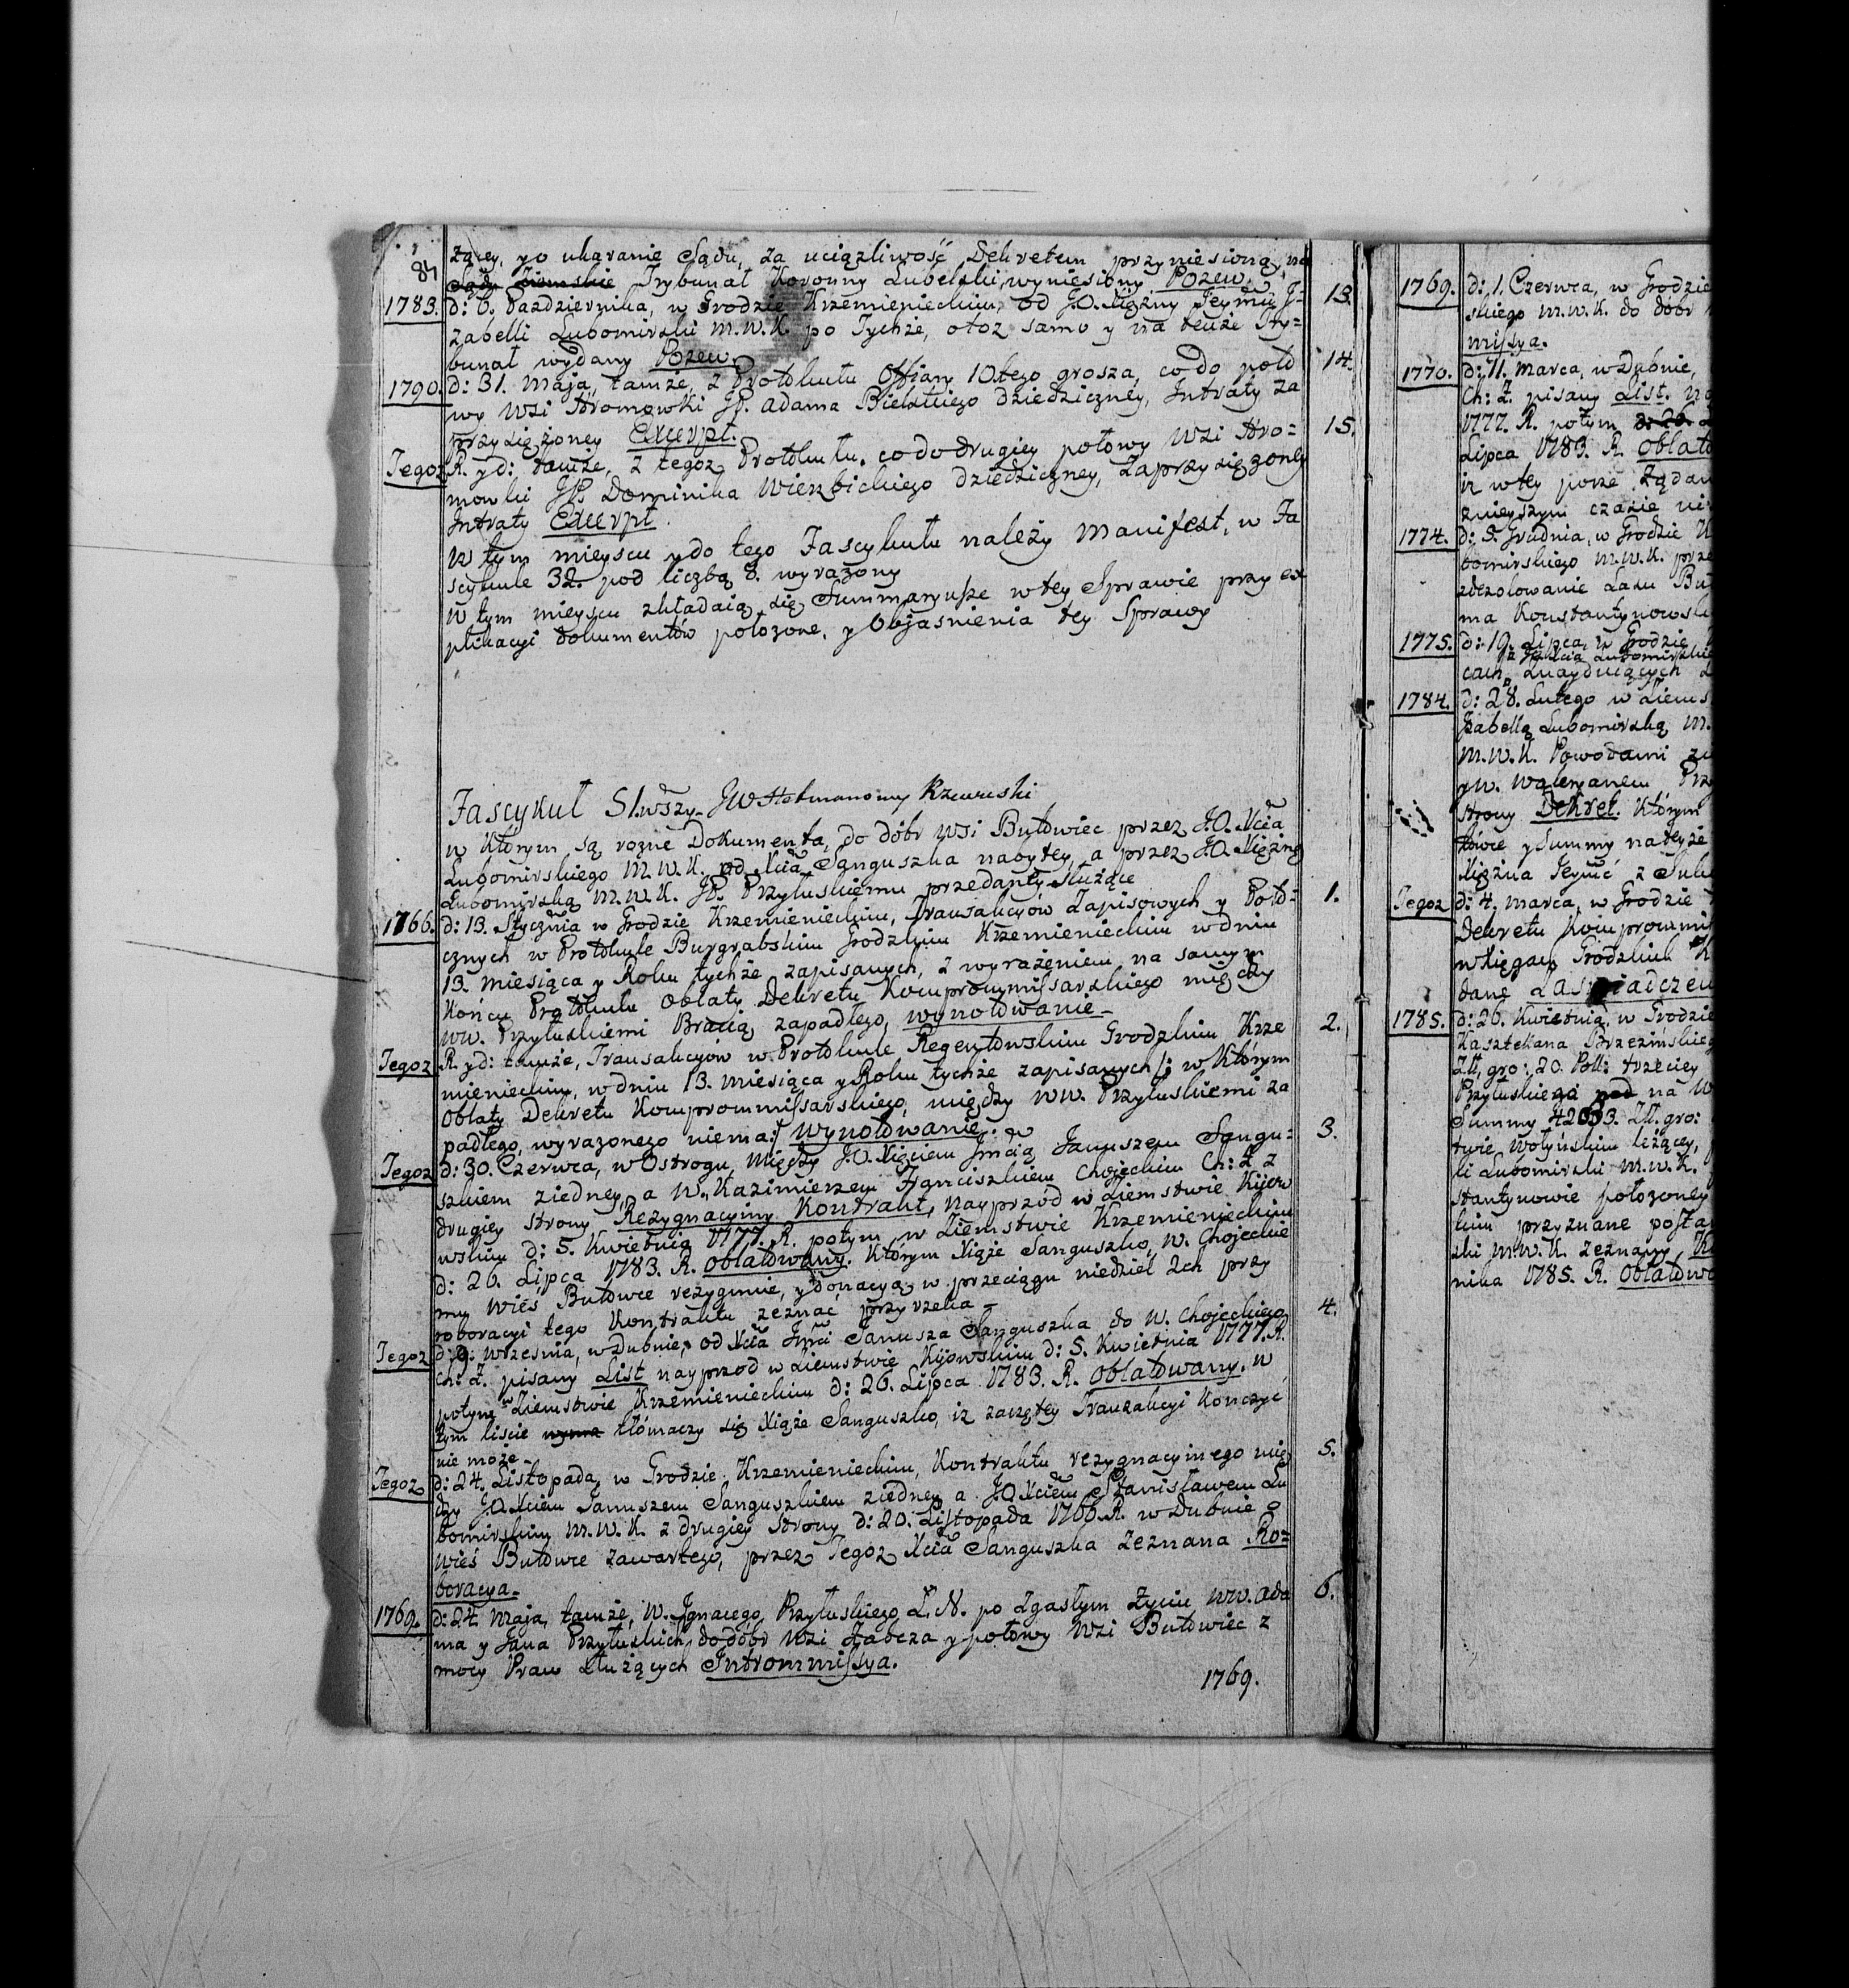 84
żącey, y o ukaranie Sądu, za uciążliwość Dekretem przyniesioną, na
Sądy Ziemskie Trybunał Koronny Lubelski wyniesiony Pozew.
1783. d: 6. Pazdziernika, w Grodzie Krzemienieckim, od J.O. Xiężny Jeymci J- 13.
zabelli Lubomirski M.W.K. po Tychże, o toż samo y na tenże Try=
bunał wydany Pozew.
1790. d: 31. Maja, tamże, z Protokułu Offiary 10tego grosza, co do poło 14.
wy wsi Hromowki JP. Adama Bielskiego dziedziczney, Intraty za
przysiężoney Excerpt.
Tegoż R. y d: tamże, z tegoż Protokułu, co do drugiey połowy wsi Hro= 15.
mowki JP. Dominika Wierzbickiego dziedziczney, zaprzysiężoney
Intraty Excerpt.
W tym mieyscu y do tego Fascykułu należy Manifest, w Fa
scykule 32. pod liczbą 8. wyrażony
W tym mieyscu składaią się Summaryusze w tey Sprawie przy ex
plikacyi dokumentów położone, y Objasnienia tey Sprawy
Fascykuł 51.wszy JW Hetmanowy Rzewuski
w którym są rożne Dokumenta, do dóbr wsi Bułdwiec przez J.O. Xcia
Lubomirskiego M.W.K. od Xcia Sanguszka nabytey, a przez J.O. Xiężnę
Lubomirską M.W.K. JP. Przyłuskiemu przedanty służące
1766. d: 13. Stycznia w Grodzie Krzemienieckim, Transakcyów Zapisowych y Poto= 1.
cznych w Protokule Burgrabskim Grodzkim Krzemienieckim w dniu
13. miesiąca y Roku tychże zapisanych, z wyrażeniem na samym
Końcu Protokułu Oblaty Dekretu Kompromissarskiego między
WW. Przyłuskiemi Bracią zapadłego, wynotowanie
Tegoż R. y d: tamże, Transakcyów w Protokule Regentowskim Grodzkim Krze 2.
mienieckim, w dniu 13. miesiąca y Roku tychże zapisanych /: w którym
Oblaty Dekretu Kompromissarskiego, między WW. Przyłuskiemi za
padłego, wyrażonego niema :/ wynotowanie.
Tegoż d: 30. Czerwca, w Ostrogu, Między J.O. Xięciem Jmcią Januszem Sangu= 3.
szkiem z iedney, a W. Kazimierzem Franciszkiem Chojeckim Ch: Ż. z
drugiey strony Rezygnacyiny Kontrakt, nayprzód w Ziemstwie Kijow
wskim d: 5. Kwietnia 1777. R. potym w Ziemstwie Krzemienieckim
d: 26. Lipca 1783. R. oblatowany. Którym Xiąże Sanguszko, W. Chojeckie
mu wieś Bułdwce rezygnuie, y donacyą w przeciągu niedziel 2ch przy
roboracyi tego Kontraktu zeznać przyrzeka
Tegoż d: 9. Wrzesnia, w Dubnie, od Xcia Jmci Janusza Sanguszka do W. Chojeckiego 4.
Ch: Ż. pisany List nayprzod w Ziemstwie Kijowskim d: 5. Kwietnia 1777. R.
potym w Ziemstwie Krzemienieckim d: 26. Lipca 1783. R. oblatowany. w
tym liście tłómaczy się Xiąże Sanguszko, iż zaczętey Transakcyi kończyć
nie może
Tegoż d: 24. Listopada, w Grodzie Krzemienieckim, Kontraktu rezygnacyinego mię 5.
dzy J.O. Xciem Januszem Sanguszkiem z iedney a J.O. Xciem Stanisławem Lu
bomirskim M.W.K. z drugiey strony d: 20. Listopada 1766. R. w Dubnie o
wieś Bułdwce zawartego, przez Tegoż Xcia Sanguszka zeznana Ro=
boracya.
1769. d: 24. Maja, tamże, W. Jgnacego Przyłuskiego Ł. N. po zgasłym życiu WW. Ada 6.
ma y Jana Przyłuskich, do dóbr wsi Jzabcza y połowy wsi Bułdwiec z
mocy Praw służących Intrommissya.
1769.
1769. d: 1. Czerwca, w Grodzie
skiego M.W.K. do dóbr
missya.
1770. d: 11. Marca, w Dubnie,
Ch: Ż. pisany List. na
1777. R. potym d: 26.
Lipca 1783. R. oblato
iż w tey porze żądan
znieyszym czasie
1774. d: 5. Grudnia, w Grodzie K
bomirskiego M.W.K. prze
zdezolowanie Lasu Bu
ma Konstantynowski
1775. d: 19. Lipca, w Grodzie
z Xciem Lubomirskie
cach, znayduiących
1784. d: 28. Lutego w Ziems
Jzabellą Lubomirską M.
M.W.K. Powodami
y W. Waleryanem Prz
strony Dekret. Którym
y Summy na teyże
Xiężna Jeymć z
Tegoż d: 4. Marca, w Grodzie
Dekretu Kompromis
w Xięgach Grodzkich K
dane zaswiadczen
1785. d: 26. Kwietnia, w Grodzie
Kasztelana Brzezińskieg
Zł, gro: 20. Pols: trzeciey
Przyłuskiego pod na W
Summy 42033. Zł. gro:
twie Wołyńskim leżącey,
li Lubomirski M.W.K.
stantynowie położoney
kim przyznane
ski M.W.K. zeznany K
nika 1785. R. Oblatowa